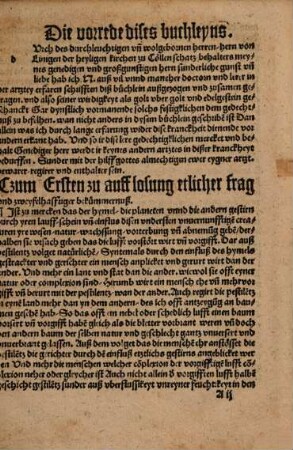 Die vorrede dises buchleyns.
Uch des durchleuchtigen vñ wolgebornen herren hern von
d
der heyligen kirchen zu Cöllen schatz behalters mey
nes genedigen vnd großgunstigen hern sunderliche gunst vñ
liebe hab ich vil vnnd mancher doctorn vnd lerer in
der artzney erfaren schrifften diß büchlein außgezogen vnd zu samen ge
tragen, vnd also seiner wirdigkeyt als golt vber golt vnd edelgstein ge
zu befallen, wan nicht anders in dysem büchlein geschribē ist Dan
allein was ich durch lange erfarung wider dise kranckheit dienende vor
anderen erkant hab. Und
halt der werdt
bedurffen. Sunder mit der hilff gottes almechtigen ewer eygner artzt,
bewarer regirer vnd enthalter sein.
Czum Ersten zu auff losung etlicher frag
vnd zweyfelhafftiger bekümmernuß.
Ist zu mercken das der hymel die planeten vnnd die andern gestirn
durch yren lauff schein vñ einfluß disen vndersten vnuernunfftige crea
turen yre wesen natur wachssung vorterbung vñ abnemūg gebē, der
halben sie vrsach geben das die lufft vorstört wirt vñ vorgifft. Dar auß
pestilentz volget natürliche. Syntemals durch den einfluß des hymels
gestochender mehr ein mensch angeplickt vnd gerurt wirt dan der
ander. Und mehr ein lant vnd stat dan die ander, wiewol sie offt eyner
natur oder complexion sind. Herumb wirt ein mensche ehr vñ mehr vor
gifft vñ berurt mit der pestilentz den der ander. Auch regirt die pestilētz
in eynē land mehr dan yn dem andern, des ich offt antzeygūg an bau
men gesehē hab. So das offt ein nebel oder schedlich lufft einen baum
berürt vñ vorgifft habē gleich als die bletter vorbrant weren vñ doch
den andern baum der selben natur vnd geschlecht gantz vnuersert vnd
vnuerbrant gelassen. Auß dem volget das die menschē ehr anstösset die
pestilētz die gerichter durch dē einfluß etzlichs gestirns angeblicket wer
den Und mehr die menschen welcher cōplexion der vorgifftigē lufft cō
plexion neher oder gleycher ist Auch nicht allein d vorgifften lufft halbē
geschicht gestilētz sunder auß vberflussikeyt vnreyner feuchtikeyt in den
A ij